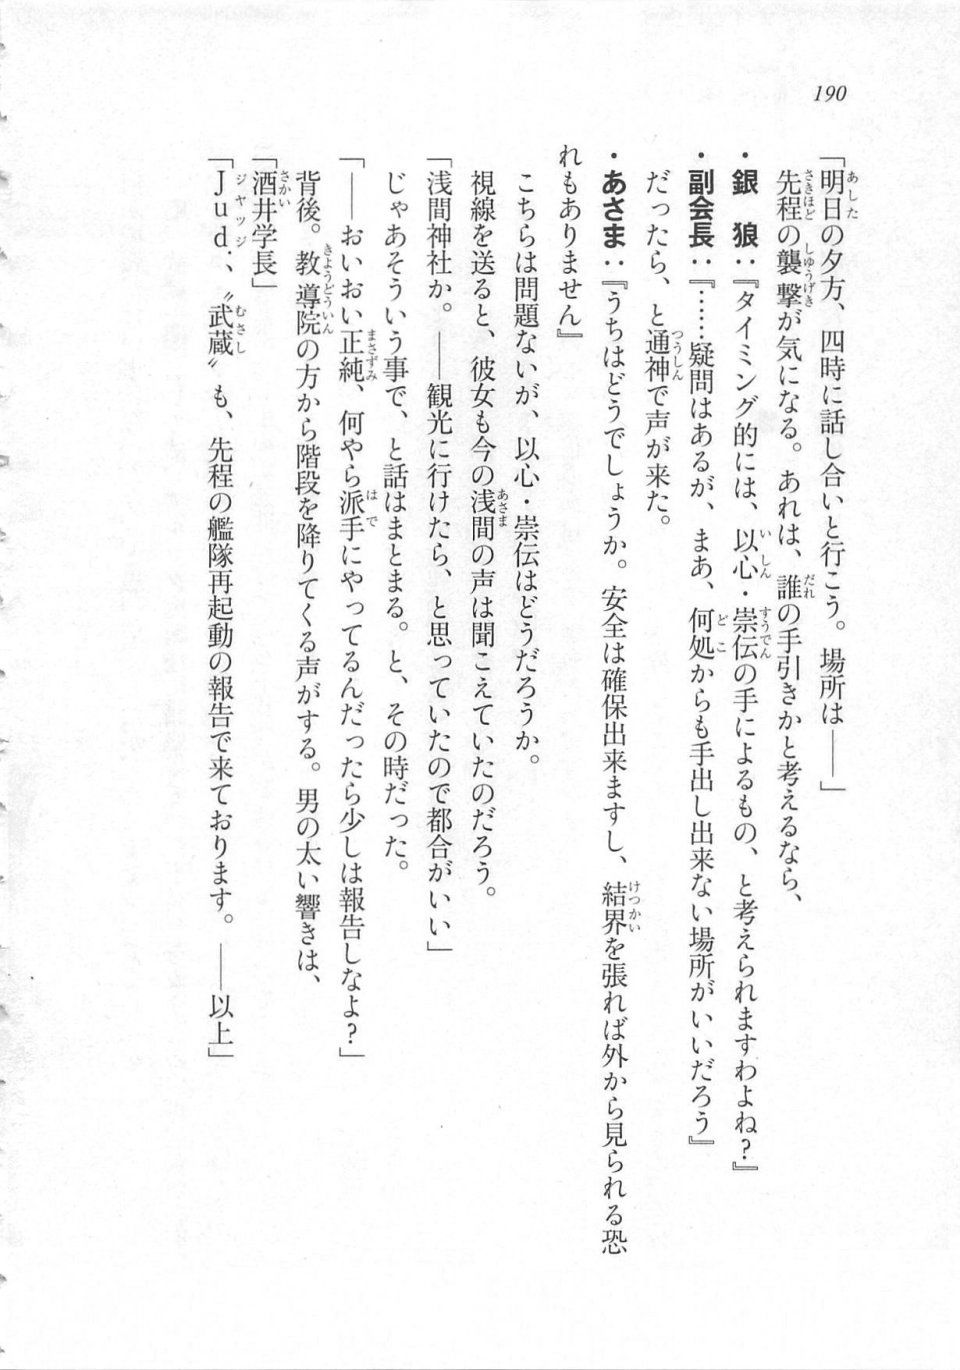 190
「明日の夕方、四時に話し合いと行こう。場所は――」
先程の襲撃が気になる。あれは、誰の手引きかと考えるなら、
・銀　狼：『タイミング的には、以心・崇伝の手によるもの、と考えられますわよね？』
・副会長：『……疑問はあるが、まあ、何処からも手出し出来ない場所がいいだろう』
だったら、と通神で声が来た。
・あさま：『うちはどうでしょうか。安全は確保出来ますし、結界を張れば外から見られる恐
れもありません』
こちらは問題ないが、以心・崇伝はどうだろうか。
視線を送ると、彼女も今の浅間の声は聞こえていたのだろう。
「浅間神社か。――観光に行けたら、と思っていたので都合がいい」
じゃあそういう事で、と話はまとまる。と、その時だった。
「――おいおい正純、何やら派手にやってるんだったら少しは報告しなよ？」
背後。教導院の方から階段を降りてくる声がする。男の太い響きは、
「酒井学長」
「Ｊｕｄ．、〝武蔵〟も、先程の艦隊再起動の報告で来ております。――以上」